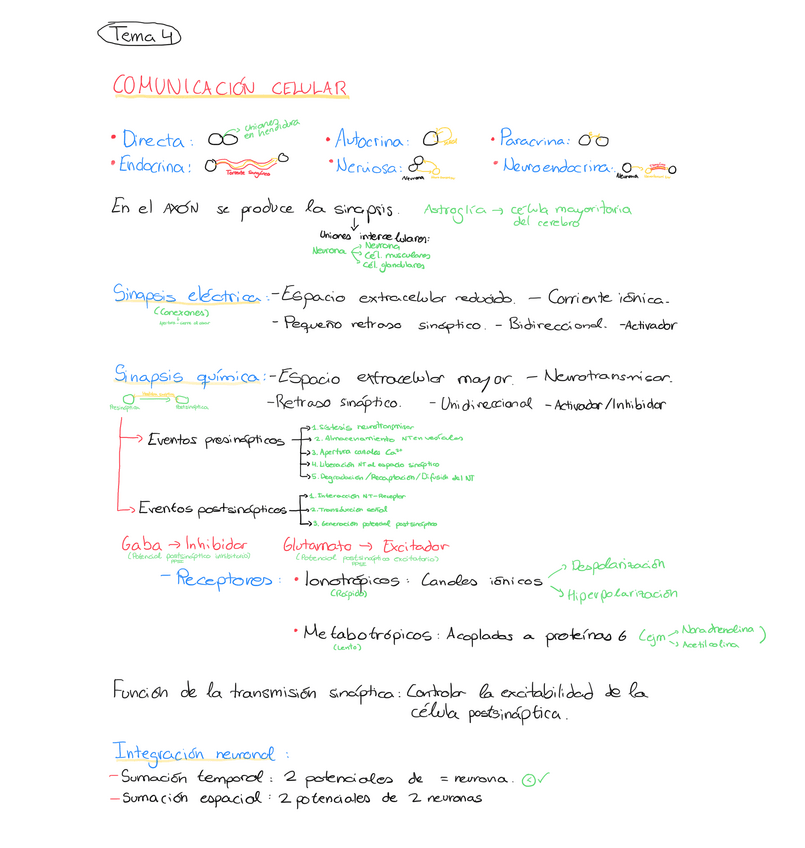 Tema 4
COMUNICACIÓN CELULAR
• Directa: Uniones en hendidura • Autocrina: • Paracrina:
• Endocrina: Torrente sanguíneo • Nerviosa: Neurona • Neuroendocrina: Neurona
En el AXÓN se produce la sinapsis. Astroglía → célula mayoritaria del cerebro
Uniones intercelulares:
Neurona → Neurona
→ Cél. musculares
→ Cél. glandulares
Sinapsis eléctrica: - Espacio extracelular reducido. - Corriente iónica.
(Conexones)
- Pequeño retraso sináptico. - Bidireccional. - Activador
Sinapsis química: - Espacio extracelular mayor. - Neurotransmisor.
- Retraso sináptico. - Unidireccional - Activador/Inhibidor
Presináptica → Postsináptica
Eventos presinápticos
1. Síntesis neurotransmisor
2. Almacenamiento NT en vesículas
3. Apertura canales Ca²⁺
4. Liberación NT al espacio sináptico
5. Degradación / Recaptación / Difusión del NT
Eventos postsinápticos
1. Interacción NT-Receptor
2. Transducción señal
3. Generación potencial postsináptico
Gaba → Inhibidor Glutamato → Excitador
(Potencial postsináptico inhibitorio) (Potencial postsináptico excitatorio)
- Receptores: • Ionotrópicos: Canales iónicos → Despolarización
(Rápido) → Hiperpolarización
• Metabotrópicos: Acoplados a proteínas G (ejm → Noradrenalina
(Lento) → Acetilcolina)
Función de la transmisión sináptica: Controlar la excitabilidad de la
célula postsináptica.
Integración neuronal:
- Sumación temporal: 2 potenciales de = neurona. ✓
- Sumación espacial: 2 potenciales de 2 neuronas